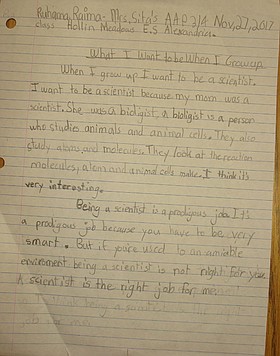 Ruhama, Raima- Mrs. Sita's AAP 3/4 Nov, 27, 2017
class Hollin Meadows E.S Alexandria.
What I Want to be When I Grow up
When I grow up I want to be a scientist.
I want to be a scientist because my mom was a
scientist. She was a bioligist, a bioligist is a person
who studies animals and animal cells. They also
study atoms and molecules. They look at the reaction
molecules, atom and animal cells make. I think it's
very interesting.
Being a scientist is a prodigious job. It's
a prodigous job because you have to be very
smart. But if you're used to an amiable
enviroment being a scientist is not right for you.
A scientist is the right job for me.